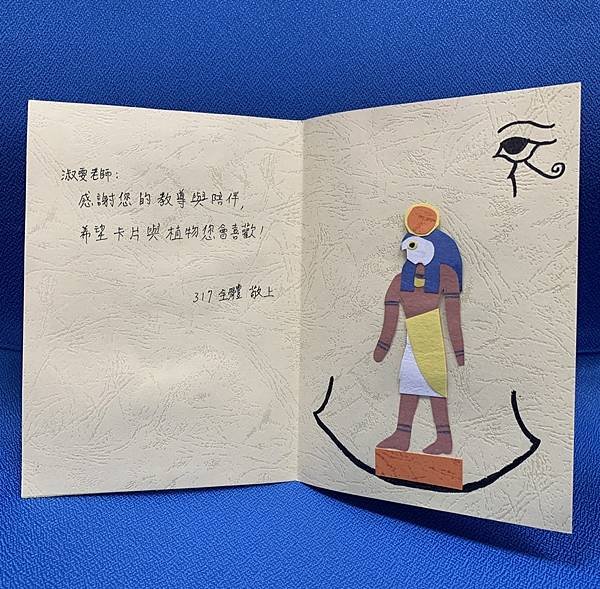 淑雯老師:
感謝您的教導與陪伴,
希望卡片與植物您會喜歡!
317 全體 敬上